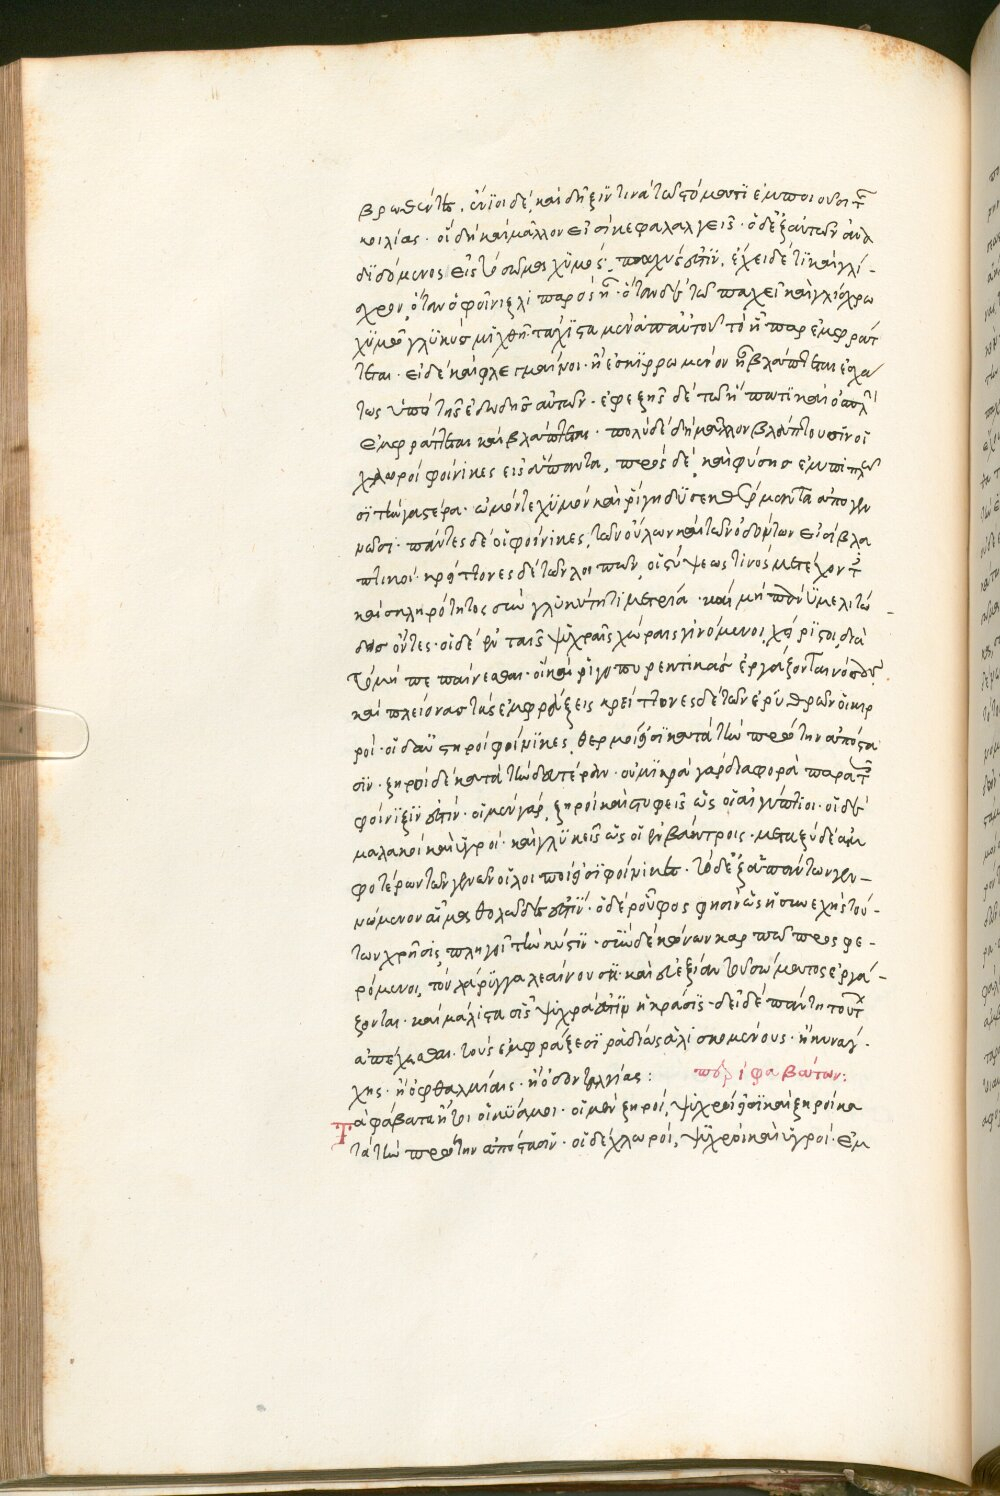 βρωθέντες. ἔνιοι δὲ, καὶ δῆξιν τινὰ τῶ στόματι ἐμποιοῦσι τῆς
κοιλίας. οἳ δὴ καὶ μᾶλλον εἰσὶ κεφαλαλγεῖς. ὁ δ' ἐξ αὐτῶν ἀνα
διδόμενος εἰς τὸ σῶμα χϋμὸς, παχύς ἐστϊν. ἔχει δέ τι καὶ γλί-
σχρον, ὅταν ὁ φοῖνιξ λιπαρὸς ἦ. ὅταν δὲ τῶ παχεῖ καὶ γλίσχρω
χϋμῶ γλϋκὺς μιχθῆ. τάχϊστα μὲν ὑπ' αὐτοῦ τὸ ἧπαρ ἐμφράτ
τεται. εἰ δὲ καὶ φλεγμαίνοι. ἢ ἐσκϊρρωμένον ἦ βλάπτεται ἐσχά
τως ὑπὸ τῆς ἐδωδῆς αὐτῶν. ἐφεξῆς δὲ τῶ ἥπατϊ καὶ ὁ σπλὴν
ἐμφράττεται καὶ βλάπτεται. πολὺ δὲ δὴ μᾶλλον βλάπτουσιν οἱ
χλωροὶ φοίνικες εἰς ἅπαντα, πρὸς δὲ, καὶ φύσης ἐμπιπλῶ
σϊ τὴν γαστέρα. ὠμόν τε χϋμὸν καὶ ῥίγη δϋσεκθέρμαντα ἀπογεν
νῶσι. πάντες δὲ οἱ φοίνικες, τῶν οὔλων καὶ τῶν ὀδόντων εἰσὶ βλα
πτικοί. κρείττονες δὲ τῶν λοιπῶν, οἱ στύψεώς τινος μετέχοντες
καὶ σκληρότητος σὺν γλϋκύτητι μετρία. καὶ μὴ πάνϋ μελιτώ-
δεις ὄντες. οἱ δὲ ἐν ταῖς ψϋχραῖς χώραις γινόμενοι, χείρϊστοι, διὰ
τὸ μὴ πεπαίνεσθαι. οἳ καὶ ῥιγοπυρεντικὰς ἐργάζονται νόσους.
καὶ πλείονας τὰς ἐμφράξεις κρείττονες δὲ τῶν ἐρϋθρῶν οἱ κιρ
ροί. οἱ δ' αὐστηροὶ φοίνϊκες, θερμοί εἰσϊ κατὰ τὴν πρώτην ἀπόστα
σϊν. ξηροὶ δὲ κατὰ τὴν δευτέραν. οὐ μϊκρὰ γὰρ διαφορὰ παρὰ τοῖς
φοίνϊξίν ἐστιν. οἱ μὲν γὰρ, ξηροὶ καὶ στυφεῖς ὡς οἱ αἰγύπτιοι. οἱ δὲ
μαλακοὶ καὶ ὑγροί. καὶ γλϋκεῖς ὡς οἱ ἐν βάκτροις. μεταξὺ δὲ ἀμ
φοτέρων τῶν γενῶν οἱ λοιποί εἰσϊ φοίνικες. τὸ δὲ ἐξ ἁπάντων γεν-
νώμενον αἷμα θολῶδές ἐστϊν. ὁ δὲ ῥοῦφος φησὶν ὡς ἡ συνεχὴς τού-
των χρῆσις, πληροῖ τὴν κύστϊν. σὺν δὲ κώνων καρπῶ προσφε-
ρόμενοι, τὸν λάρϋγγα λεαίνουσϊ. καὶ εὐεξίαν τοῦ σώματος ἐργά-
ζονται. καὶ μάλϊστα οἷς ψϋχρά ἐστϊν ἡ κρᾶσϊς. δεῖ δὲ πάντη τούτων
ἀπέχεσθαι. τοὺς ἐμφράξεσϊ ῥαδίως ἁλϊσκομένους. ἢ κυνάγ-
χης. ἢ ὀφθαλμίαις. ἢ ὀδονταλγίας: περὶ φαβάτων:
Τὰ φάβατα ἤτοι οἱ κϋάμοι. οἱ μὲν ξηροὶ, ψϋχροί εἰσϊ καὶ ξηροὶ κα
τὰ τὴν πρώτην ἀπόστασϊν. οἱ δὲ χλωροὶ, ψϋχροὶ καὶ ὑγροί. ἐμ